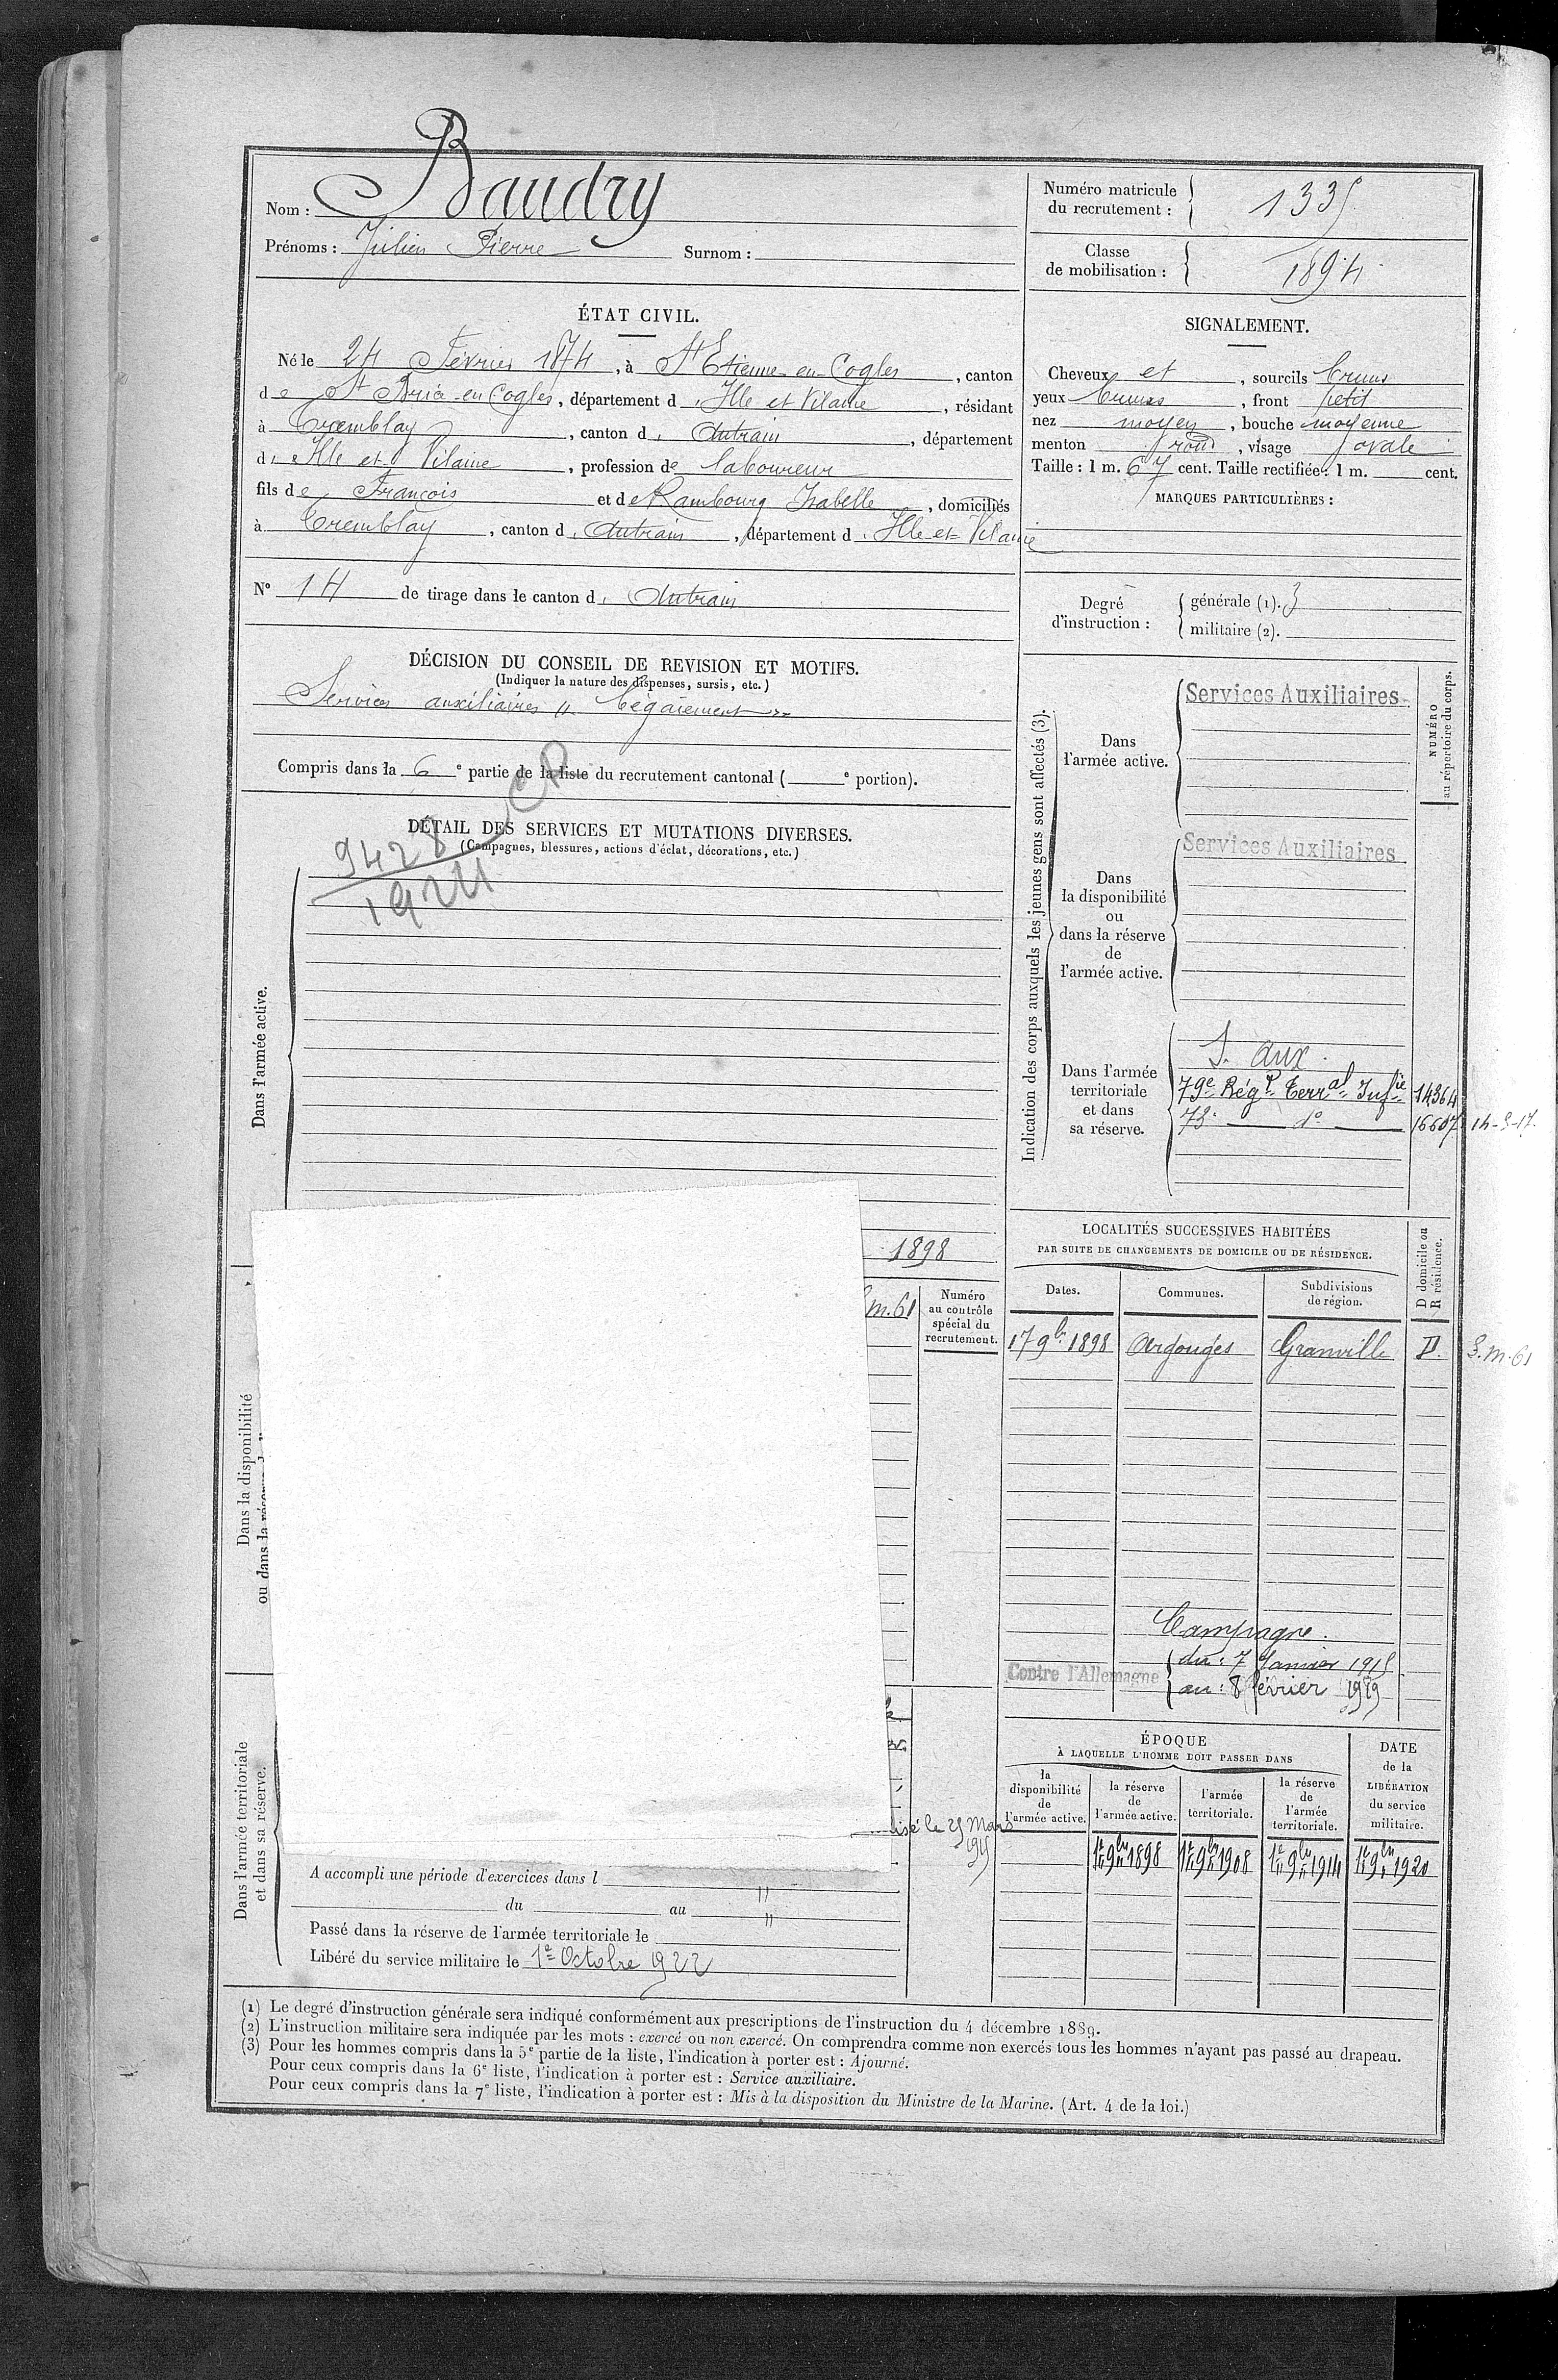 Nom : Baudry
Prénoms : Julien Pierre Surnom :
Numéro matricule du recrutement : 1335
Classe de mobilisation : 1894
ÉTAT CIVIL.
Né le 24 Février 1874, à St Etienne-en-Cogles, canton
de St Brice-en-Cogles, département d'Ille et Vilaine, résidant
à Tremblay, canton d'Antrain, département
d'Ille et Vilaine, profession de laboureur
fils de François et de Rambourg Isabelle, domiciliés
à Tremblay, canton d'Antrain, département d'Ille et Vilaine
N° 14 de tirage dans le canton d'Antrain
SIGNALEMENT.
Cheveux et, sourcils bruns
yeux bruns, front petit
nez moyen, bouche moyenne
menton rond, visage ovale
Taille : 1 m. 67 cent. Taille rectifiée : 1 m. cent.
MARQUES PARTICULIÈRES :
Degré d'instruction :
générale (1). 3
militaire (2).
DÉCISION DU CONSEIL DE REVISION ET MOTIFS.
(Indiquer la nature des dispenses, sursis, etc.)
Services auxiliaires " bégaiement "
Compris dans la 6e partie de la liste du recrutement cantonal ( e portion).
DÉTAIL DES SERVICES ET MUTATIONS DIVERSES.
(Campagnes, blessures, actions d'éclat, décorations, etc.)
9428 CP
1924
Dans l'armée active.
1898
m. 61
Numéro
au contrôle
spécial du
recrutement.
Dans la disponibilité
ou dans la
Dans l'armée territoriale
et dans sa réserve.
le 25 Mars
1915
A accompli une période d'exercices dans l "
du au "
Passé dans la réserve de l'armée territoriale le
Libéré du service militaire le 1er Octobre 1922
Indication des corps auxquels les jeunes gens sont affectés (3).
NUMÉRO
au répertoire du corps.
Dans
l'armée active.
Services Auxiliaires
Dans
la disponibilité
ou
dans la réserve
de
l'armée active.
Services Auxiliaires
Dans l'armée
territoriale
et dans
sa réserve.
S. aux.
79e Régt Terral Infie 14364
78e do 16607 14-9-17.
LOCALITÉS SUCCESSIVES HABITÉES
PAR SUITE DE CHANGEMENTS DE DOMICILE OU DE RÉSIDENCE.
Dates. Communes. Subdivisions de région. D domicile ou R résidence.
17 9bre 1898 Argouges Granville D. S.m. 61
Campagne.
Contre l'Allemagne
du : 7 Janvier 1915
au : 8 février 1919
ÉPOQUE
À LAQUELLE L'HOMME DOIT PASSER DANS
la disponibilité de l'armée active.
la réserve de l'armée active.
l'armée territoriale.
la réserve de l'armée territoriale.
DATE de la LIBÉRATION du service militaire.
1er 9bre 1898 1er 9bre 1908 1er 9bre 1914 1er 9bre 1920
(1) Le degré d'instruction générale sera indiqué conformément aux prescriptions de l'instruction du 4 décembre 1889.
(2) L'instruction militaire sera indiquée par les mots : exercé ou non exercé. On comprendra comme non exercés tous les hommes n'ayant pas passé au drapeau.
(3) Pour les hommes compris dans la 5e partie de la liste, l'indication à porter est : Ajourné.
Pour ceux compris dans la 6e liste, l'indication à porter est : Service auxiliaire.
Pour ceux compris dans la 7e liste, l'indication à porter est : Mis à la disposition du Ministre de la Marine. (Art. 4 de la loi.)